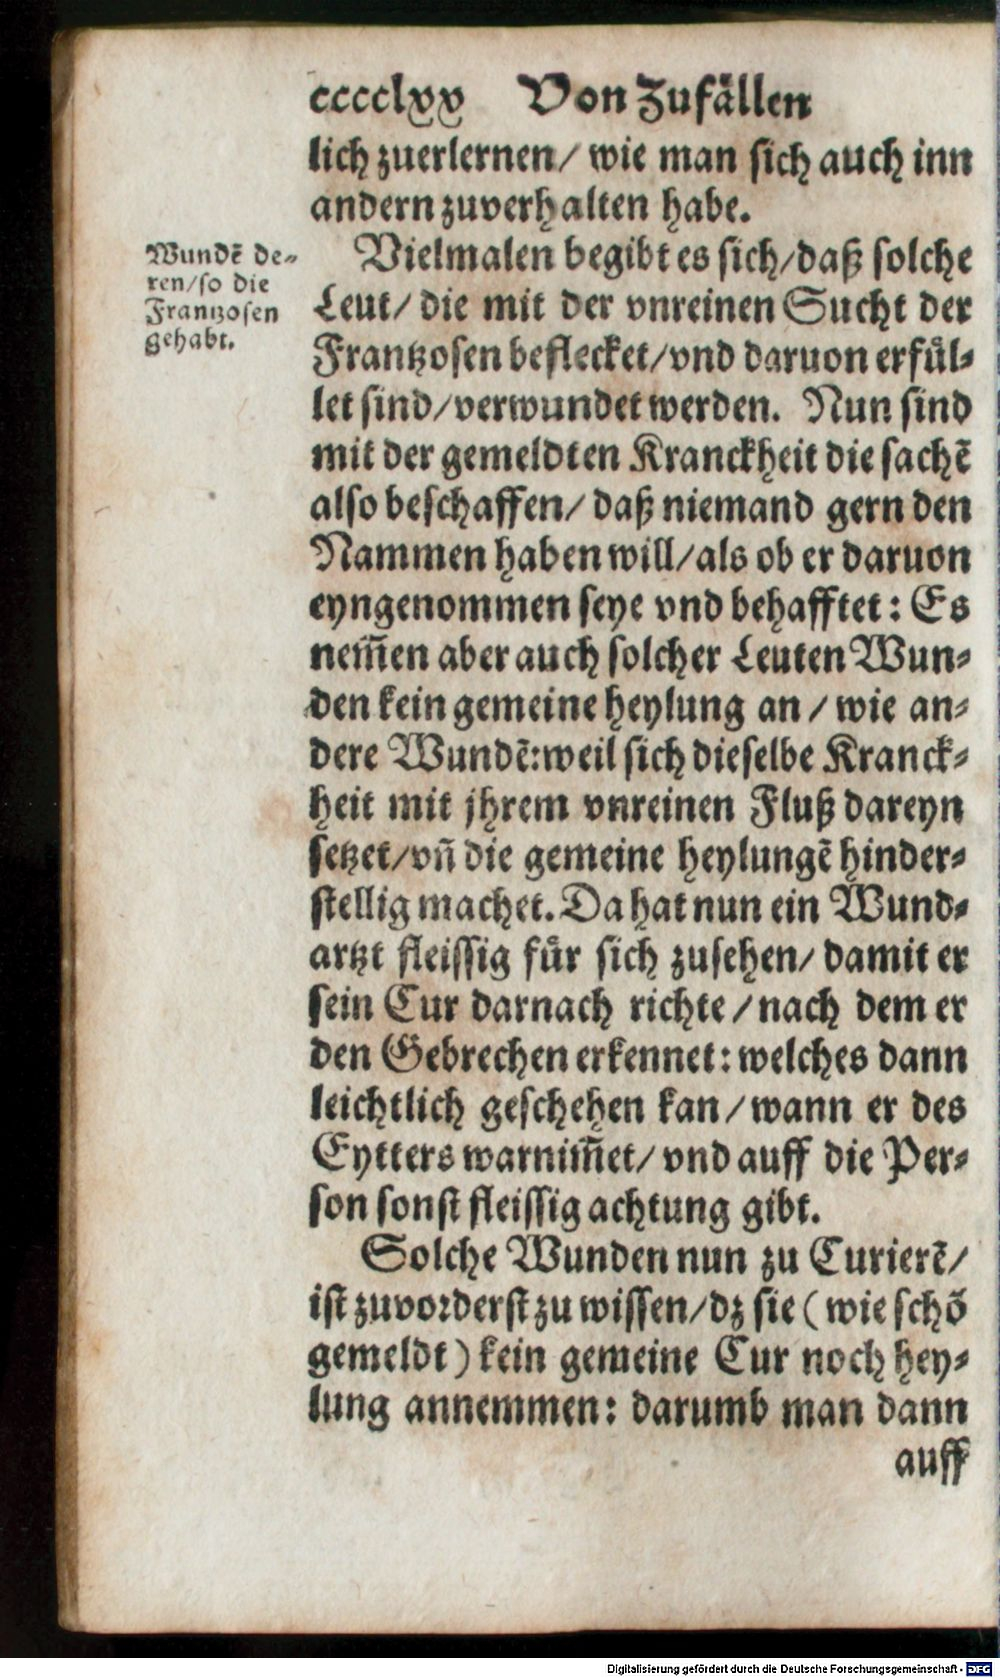 cccclxx Von Zufällen
lich zuerlernen/ wie man sich auch inn
andern zuverhalten habe.
Wundẽ de-
ren/so die
Frantzosen
gehabt.
Vielmalen begibt es sich/daß solche
Leut/ die mit der vnreinen Sucht der
Frantzosen beflecket/vnd daruon erfuͤl-
let sind/verwundet werden. Nun sind
mit der gemeldten Kranckheit die sachẽ
also beschaffen/ daß niemand gern den
Nammen haben will/als ob er daruon
eyngenommen seye vnd behafftet: Es
nem̃en aber auch solcher Leuten Wun-
den kein gemeine heylung an / wie an-
dere Wundẽ:weil sich dieselbe Kranck-
heit mit jhrem vnreinen Fluß dareyn
setzet/vñ die gemeine heylungẽ hinder-
stellig machet. Da hat nun ein Wund-
artzt fleissig fuͤr sich zusehen/ damit er
sein Cur darnach richte / nach dem er
den Gebrechen erkennet: welches dann
leichtlich geschehen kan / wann er des
Eytters warnim̃et/ vnd auff die Per-
son sonst fleissig achtung gibt.
Solche Wunden nun zu Curierẽ/
ist zuvorderst zu wissen/dz sie ( wie schõ
gemeldt ) kein gemeine Cur noch hey-
lung annemmen: darumb man dann
auff
Digitalisierung gefördert durch die Deutsche Forschungsgemeinschaft - DFG